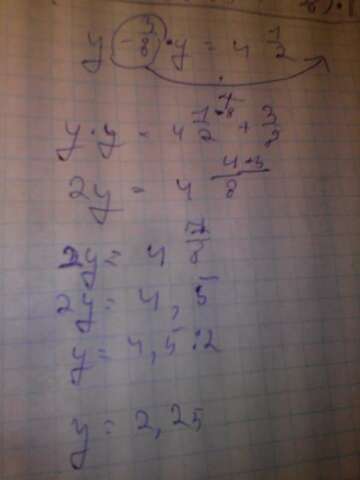 y - 3/8 · y = 4 1/2
y · y = 4 1/2 + 3/8
2y = 4 (4+3)/8
2y = 4 7/8
2y = 4,5
y = 4,5 : 2
y = 2,25